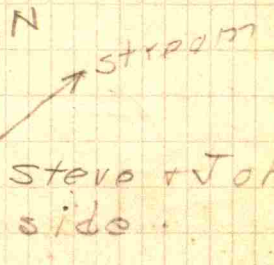 N
stream
Steve + Jor
side.